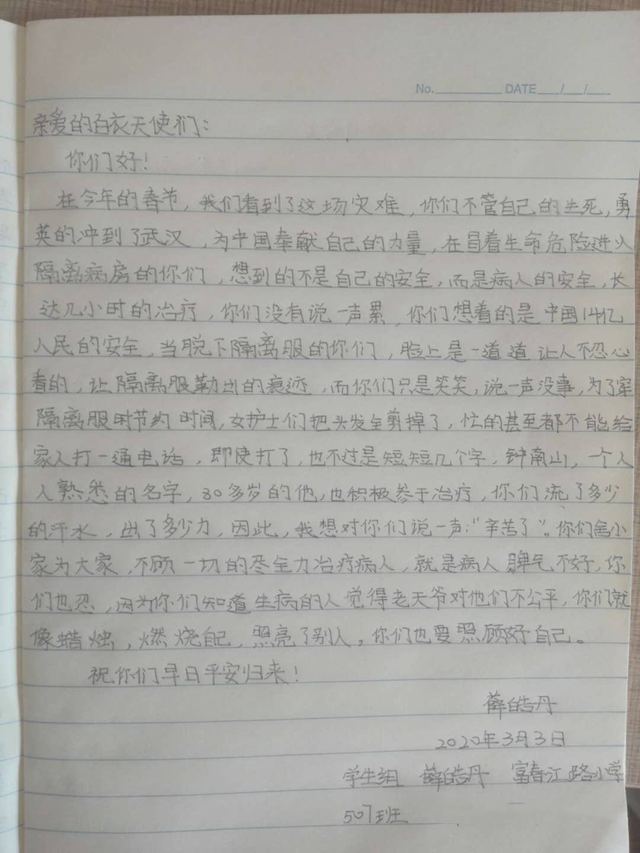 No. DATE / /
亲爱的白衣天使们：
你们好！
在今年的春节，我们看到了这场灾难，你们不管自己的生死，勇
英的冲到了武汉，为中国奉献自己的力量，在冒着生命危险进入
隔离病房的你们，想到的不是自己的安全，而是病人的安全，长
达几小时的治疗，你们没有说一声累，你们想着的是中国14亿
人民的安全，当脱下隔离服的你们，脸上是一道道让人不忍心
看的，让隔离服勒出的痕迹，而你们只是笑笑，说一声没事，为了穿
隔离服时节约时间，女护士们把头发全剪掉了，忙的甚至都不能给
家人打一通电话，即使打了，也不过是短短几个字，钟南山，一个人
人熟悉的名字，80多岁的他，也积极参于治疗，你们流了多少
的汗水，出了多少力，因此，我想对你们说一声：“辛苦了”。你们舍小
家为大家，不顾一切的尽全力治疗病人，就是病人脾气不好，你
们也忍，因为你们知道生病的人觉得老天爷对他们不公平，你们就
像蜡烛，燃烧自己，照亮了别人，你们也要照顾好自己。
祝你们早日平安归来！
薛皓丹
2020年3月3日
学生组 薛皓丹 富春江路小学
507班